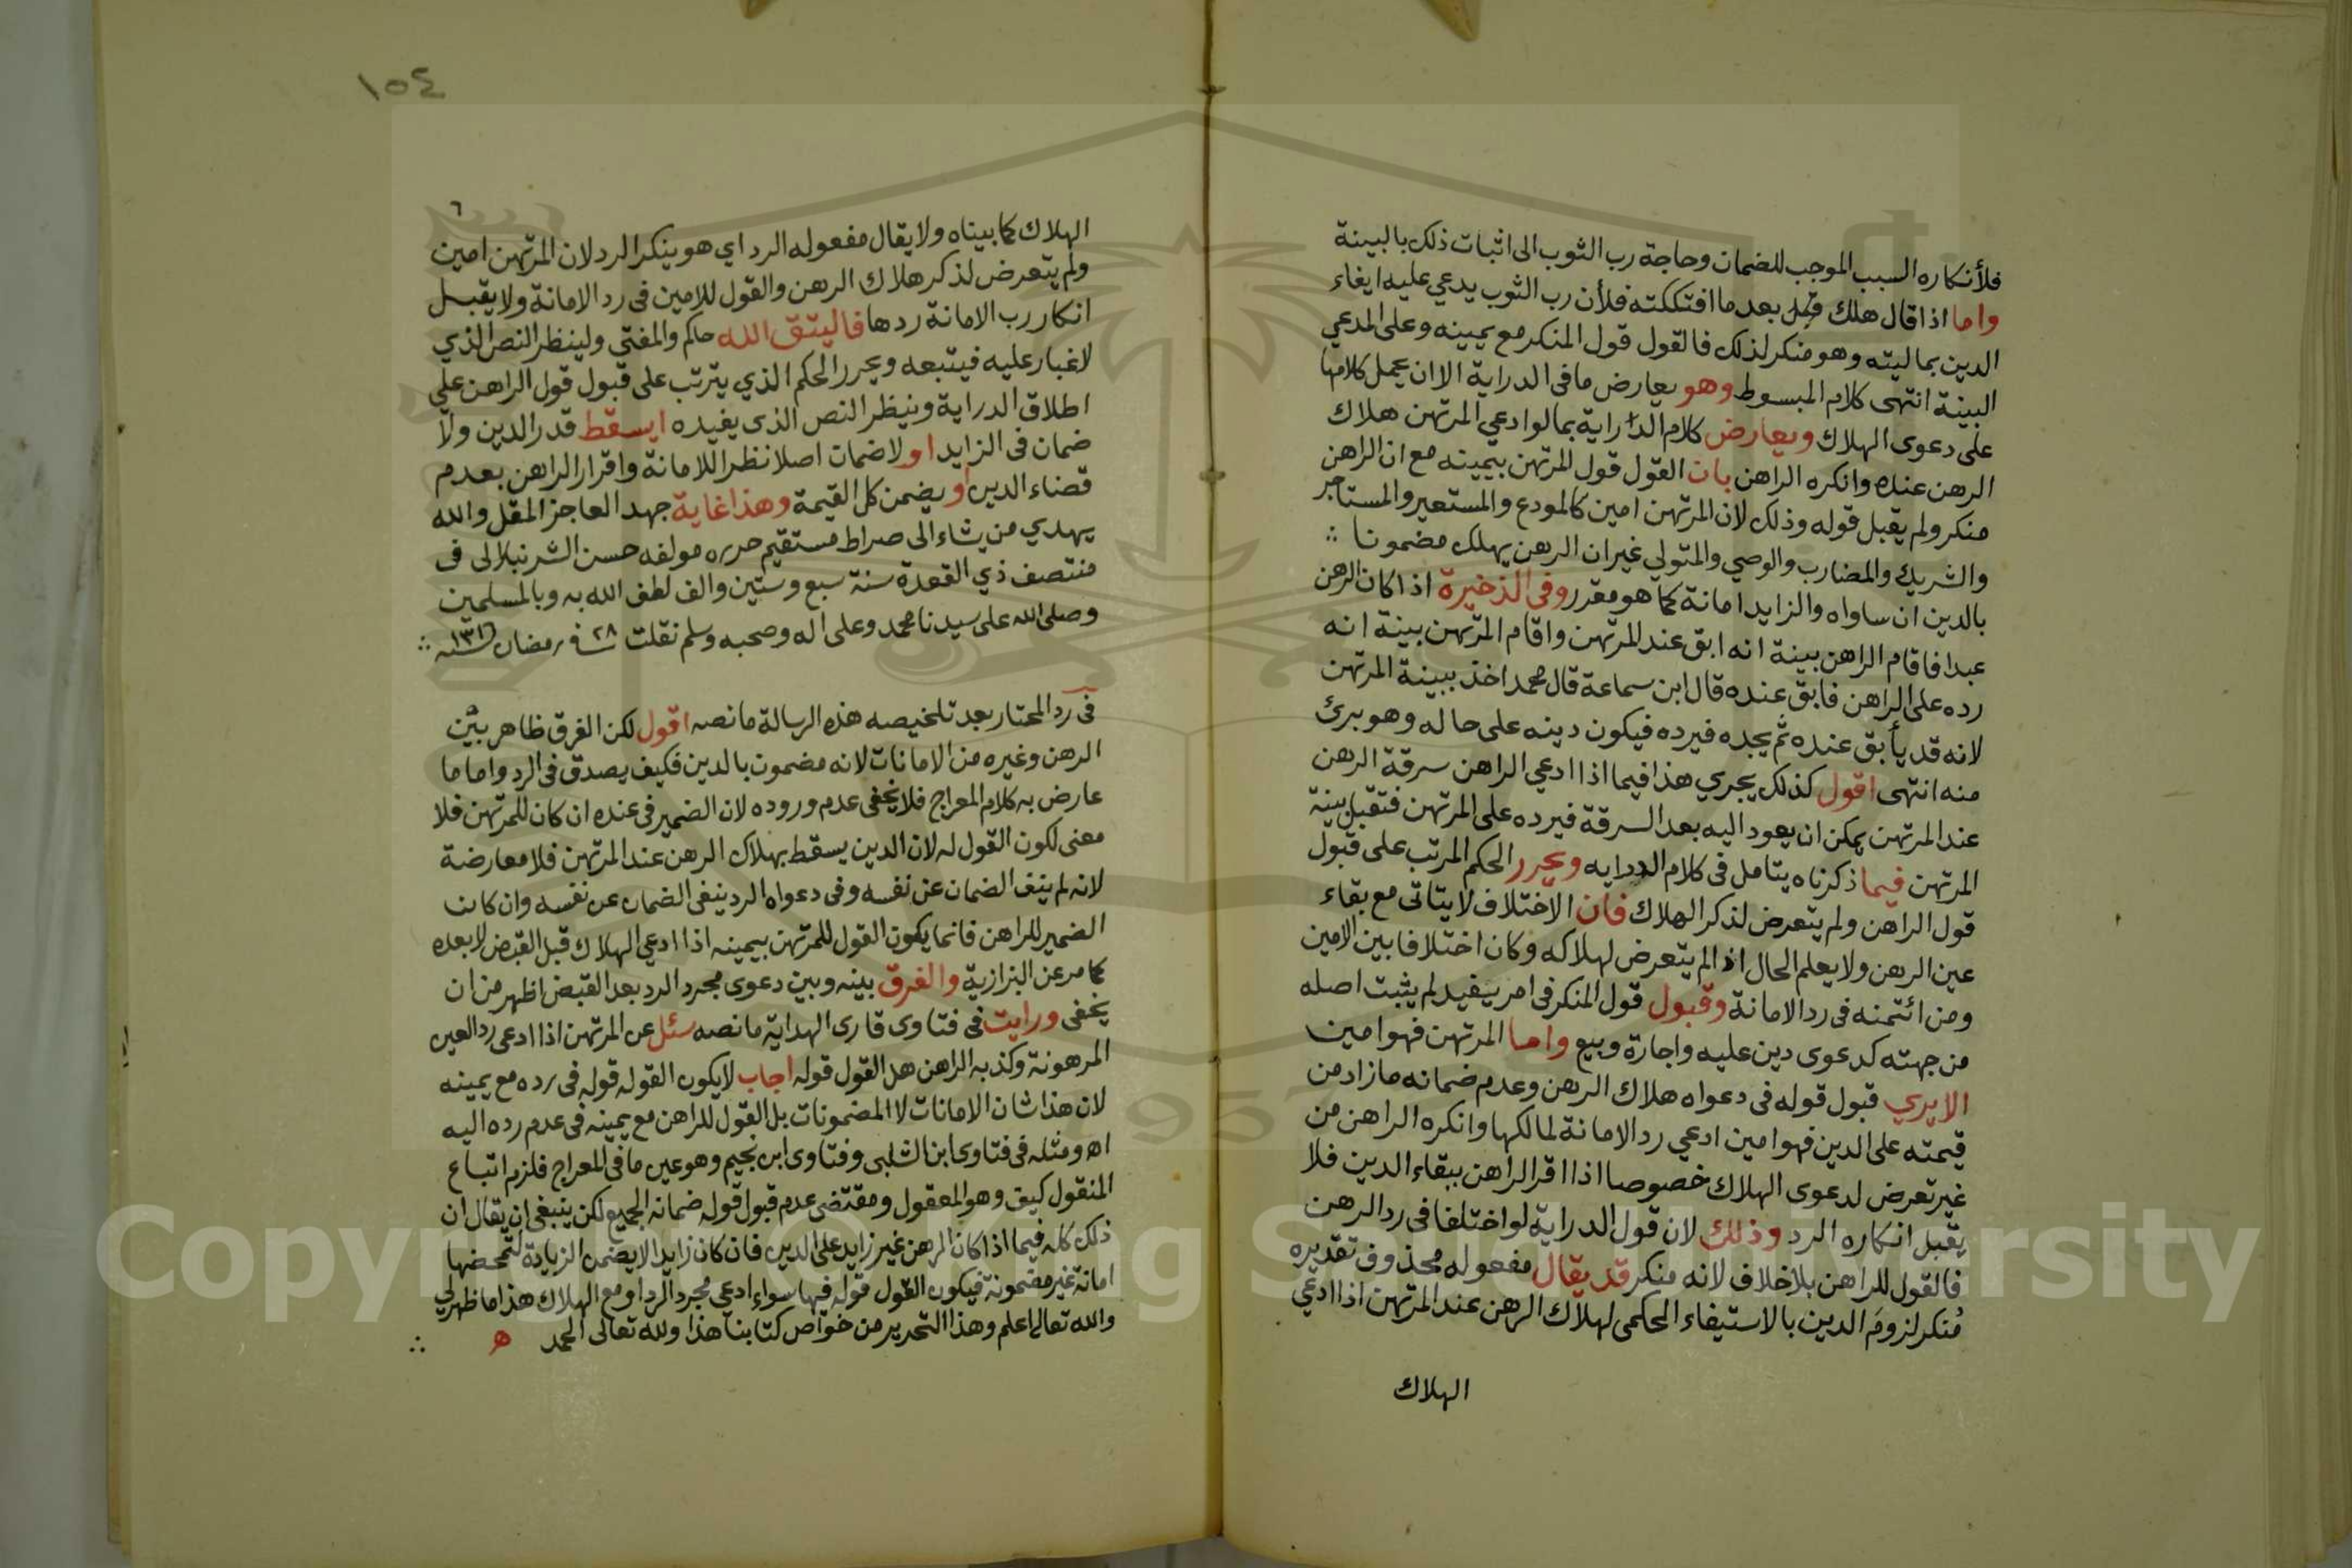 فلأنكاره السبب الموجب للضمان وحاجة رب الثوب الى اثبات ذلك بالبينة
واما اذا قال هلك قبل بعد ما افتككته فلأن رب الثوب يدعي عليه ايفاء
الدين بماليته وهو منكر لذلك فالقول قول المنكر مع يمينه وعلى المدعي
البينة انتهى كلام المبسوط وهو يعارض ما في الدراية الا ان يحمل كلامها
على دعوى الهلاك ويعارض كلام الدراية بما لو ادعي المرتهن هلاك
الرهن عنده وانكره الراهن بان القول قول المرتهن بيمينه مع ان الراهن
منكر ولم يقبل قوله وذلك لان المرتهن امين كالمودع والمستعير والمستاجر
والشريك والمضارب والوصي والمتولي غير ان الرهن يهلك مضمونا ∴
بالدين ان ساواه والزايد امانة كما هو مقرر وفى الذخيرة اذا كان الرهن
عبدا فاقام الراهن بينة انه ابق عند المرتهن واقام المرتهن بينة انه
رده على الراهن فابق عنده قال ابن سماعة قال محمد اخذ ببينة المرتهن
لانه قد يأبق عنده ثم يجده فيرده فيكون دينه على حاله وهو برئ
منه انتهى اقول كذلك يجري هذا فيما اذا ادعي الراهن سرقة الرهن
عند المرتهن يمكن ان يعود اليه بعد السرقة فيرده على المرتهن فتقبل بينة
المرتهن فيما ذكرناه يتامل فى كلام الدرايه ويحرر الحكم المرتب على قبول
قول الراهن ولم يتعرض لذكر الهلاك فان الاختلاف لا يتاتى مع بقاء
عين الرهن ولا يعلم الحال اذا لم يتعرض لهلاكه وكان اختلافا بين الامين
ومن ائتمنه فى رد الامانة وقبول قول المنكر فى امر يفيد لم يثبت اصله
من جهته كدعوى دين عليه واجارة وبيع واما المرتهن فهو امين
الايري قبول قوله فى دعواه هلاك الرهن وعدم ضمانه ما زاد من
قيمته على الدين فهو امين ادعي رد الامانة لمالكها وانكره الراهن من
غير تعرض لدعوى الهلاك خصوصا اذا اقر الراهن ببقاء الدين فلا
يقبل انكاره الرد وذلك لان قول الدراية لو اختلفا فى رد الرهن
فالقول للراهن بلا خلاف لانه منكر قد يقال مفعوله محذوف تقديره
منكر لزوم الدين بالاستيفاء الحكمى لهلاك الرهن عند المرتهن اذا ادعي
الهلاك
١٥٤
٦
الهلاك كما بيناه ولا يقال مفعوله الرد اي هو ينكر الرد لان المرتهن امين
ولم يتعرض لذكر هلاك الرهن والقول للامين فى رد الامانة ولا يقبل
انكار رب الامانة ردها فاليتق الله حاكم والمفتي ولينظر النص الذي
لا غبار عليه فيتبعه ويحرر الحكم الذي يترتب على قبول قول الراهن على
اطلاق الدراية وينظر النص الذى يفيده ايسقط قدر الدين ولا
ضمان فى الزايد او لا ضمان اصلا نظرا للامانة واقرار الراهن بعدم
قضاء الدين او يضمن كل القيمة وهذا غاية جهد العاجز المقل والله
يهدي من يشاء الى صراط مستقيم حرره مولفه حسن الشرنبلالى فى
منتصف ذي القعدة سنة سبع وستين والف لطف الله به وبالمسلمين
وصلى الله على سيدنا محمد وعلى اله وصحبه وسلم نقلت ٢٨ فى رمضان سنة ١٣١٦ ∴
فى رد المحتار بعد تلخيصه هذه الرسالة ما نصه اقول لكن الفرق ظاهر بين
الرهن وغيره من الامانات لانه مضمون بالدين فكيف يصدق فى الرد واما ما
عارض به كلام المعراج فلا يخفى عدم وروده لان الضمير فى عنده ان كان للمرتهن فلا
معنى لكون القول له لان الدين يسقط بهلاك الرهن عند المرتهن فلا معارضة
لانه لم ينف الضمان عن نفسه وفى دعواه الرد ينفى الضمان عن نفسه وان كان
الضمير للراهن فانما يكون القول للمرتهن بيمينه اذا ادعي الهلاك قبل القبض لا بعده
كما مر عن البزازية والفرق بينه وبين دعوى مجرد الرد بعد القبض اظهر من ان
يخفى ورايت فى فتاوى قارى الهداية ما نصه سئل عن المرتهن اذا ادعى رد العين
المرهونة وكذبه الراهن هل القول قوله اجاب لا يكون القول قوله فى رده مع يمينه
لان هذا شان الامانات لا المضمونات بل القول للراهن مع يمينه فى عدم رده اليه
اه ومثله فى فتاوى ابن الشلبى وفتاوى ابن نجيم وهو عين ما فى المعراج فلزم اتباع
المنقول كيف وهو المعقول ومقتضى عدم قبول قوله ضمانه الجميع لكن ينبغى ان يقال ان
ذلك كله فيما اذا كان الرهن غير زايد على الدين فان كان زايدا لا يضمن الزيادة لتمحضها
امانة غير مضمونة فيكون القول قوله فيها سواء ادعي مجرد الرد او مع الهلاك هذا ما ظهر لي
والله تعالى اعلم وهذا التحرير من خواص كتابنا هذا ولله تعالى الحمد ه ∴
Copyright © King Saud University
1957